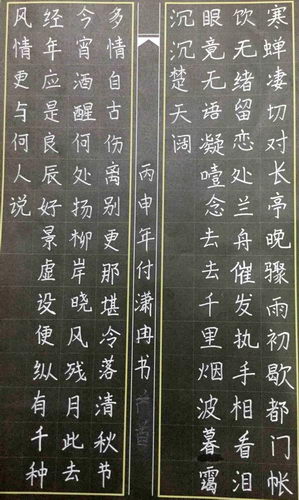 寒蝉凄切对长亭晚骤雨初歇都门帐
饮无绪留恋处兰舟催发执手相看泪
眼竟无语凝噎念去去千里烟波暮霭
沉沉楚天阔
丙申年付潇冉书
多情自古伤离别更那堪冷落清秋节
今宵酒醒何处扬柳岸晓风残月此去
经年应是良辰好景虚设便纵有千种
风情更与何人说